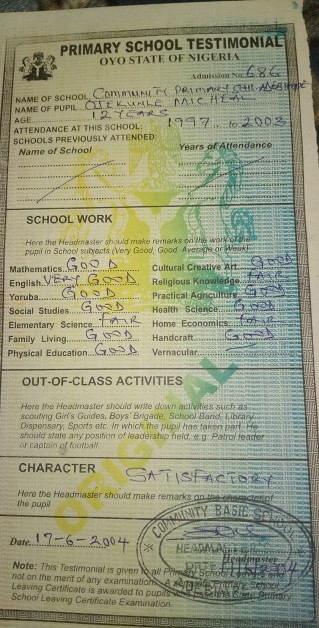 PRIMARY SCHOOL TESTIMONIAL
OYO STATE OF NIGERIA
Admission No. 686
NAME OF SCHOOL COMMUNITY PRIMARY SCHL
NAME OF PUPIL OJEKUNLE MICHEAL
AGE 12 YEARS
ATTENDANCE AT THIS SCHOOL: 1997 to 2003
SCHOOLS PREVIOUSLY ATTENDED
Name of School Years of Attendance
SCHOOL WORK
Here the Headmaster should make remarks on the work of the
pupil in School subjects (Very Good, Good, Average or Weak)
Mathematics GOOD Cultural Creative Art GOOD
English VERY GOOD Religious Knowledge FAIR
Yoruba GOOD Practical Agriculture GOOD
Social Studies GOOD Health Science GOOD
Elementary Science FAIR Home Economics FAIR
Family Living GOOD Handcraft GOOD
Physical Education GOOD Vernacular
OUT-OF-CLASS ACTIVITIES
Here the Headmaster should write down activities such as
scouting Girl's Guides, Boys' Brigade, School Band, Library
Dispensary, Sports etc. In which the pupil has taken part. He
should state any position of leadership held, e.g. Patrol leader
or captain of football.
ORIGINAL
CHARACTER SATISFACTORY
Here the Headmaster should make remarks on the character of
the pupil
COMMUNITY BASIC SCHOOL
Date 17-6-2004
HEADMASTER
Headmaster
DATE
Note: This Testimonial is given to all Primary School Leavers and
not on the merit of any examination. A School
Leaving Certificate is awarded to pupils who pass the Primary
School Leaving Certificate Examination.